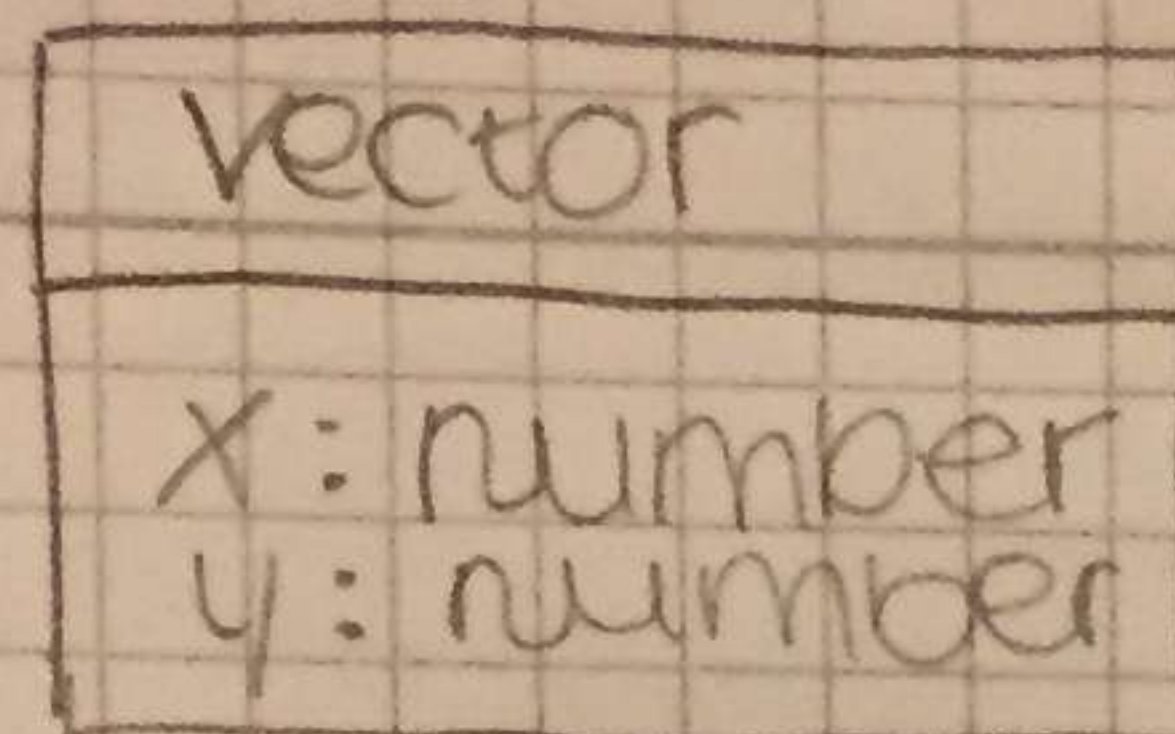 vector
x: number
y: number